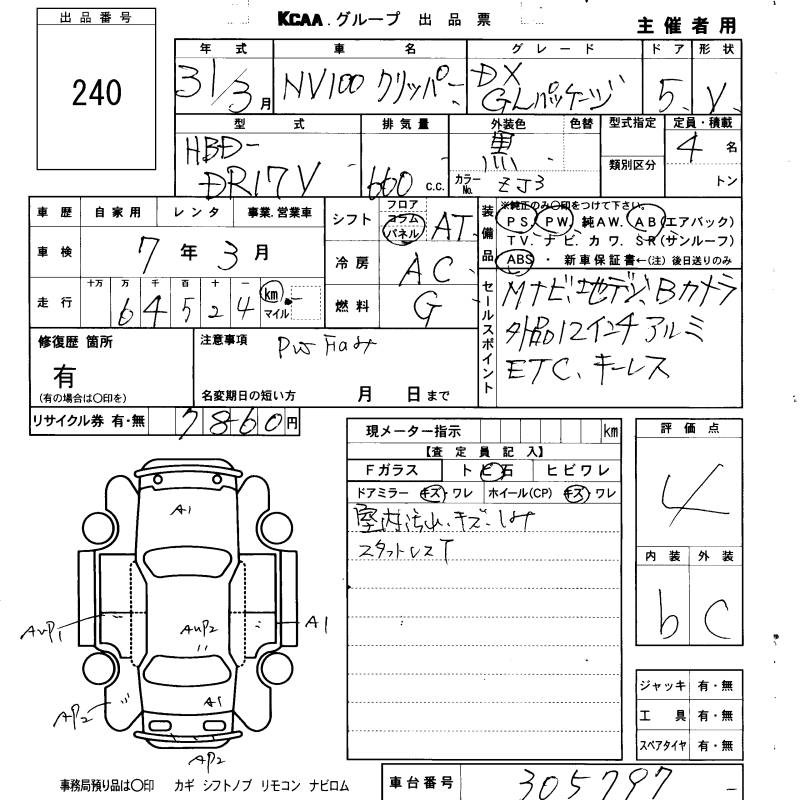 出品番号
240
KCAA.グループ 出品票
主催者用
年式 車名 グレード ドア 形状
31/3月 NV100 クリッパー DX GLパッケージ 5 V
型式 排気量 外装色 色替 型式指定 定員・積載
HBD-DR17V 660 c.c. 黒 カラーNo. ZJ3 類別区分 4名 トン
車歴 自家用 レンタ 事業.営業車
車検 7年3月
走行 十万 万 千 百 十 一
6 4 5 2 4 km マイル
シフト フロア コラム パネル AT
冷房 AC
燃料 G
装備品 ※純正のみ○印をつけて下さい。
PS. PW. 純AW. AB(エアバック)
TV. ナビ. カワ. SR(サンルーフ)
ABS・新車保証書←(注)後日送りのみ
セールスポイント
Mナビ、地デジ、Bカメラ
外品12インチアルミ
ETC、キーレス
修復歴 箇所
有
(有の場合は○印を)
注意事項
名変期日の短い方 月 日まで
リサイクル券 有・無 7860円
現メーター指示 km
【査定員記入】
Fガラス ト ビ 石 ヒビワレ
ドアミラー キズ・ワレ ホイール(CP) キズ・ワレ
室内汚れ、キズ、しみ
スタットレスT
評価点
4
内装 外装
b C
A1
AUP1 AUP2 A1
AP2 A1
AP2
ジャッキ 有・無
工具 有・無
スペアタイヤ 有・無
事務局預り品は○印 カギ シフトノブ リモコン ナビロム
車台番号 305797